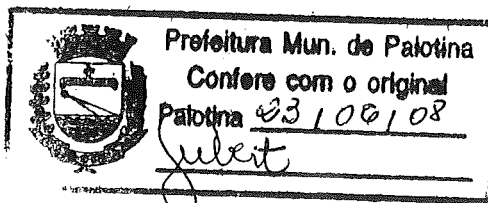 Prefeitura Mun. de Palotina
Confere com o original
Palotina 23 / 06 / 08